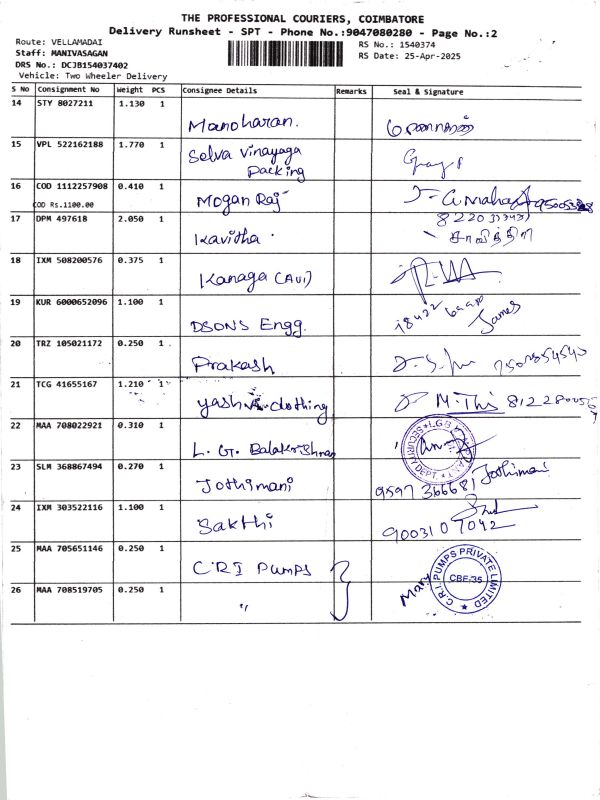 THE PROFESSIONAL COURIERS, COIMBATORE
Delivery Runsheet - SPT - Phone No.:9047080280 - Page No.:2
Route: VELLAMADAI
RS No.: 1540374
Staff: MANIVASAGAN
RS Date: 25-Apr-2025
DRS No.: DCJB154037402
Vehicle: Two Wheeler Delivery
S No Consignment No Weight PCS Consignee Details Remarks Seal & Signature
14 STY 8027211 1.130 1
Manoharan.
15 VPL 522162188 1.770 1
Selva Vinayaga
Packing
16 COD 1112257908 0.410 1
COD Rs.1100.00
Mogan Raj
17 DPM 497618 2.050 1
Kavitha
சாவித்திரி
18 IXM 508200576 0.375 1
Kanaga (AVI)
19 KUR 6000652096 1.100 1
DSONS Engg.
James
20 TRZ 105021172 0.250 1
Prakash
21 TCG 41655167 1.210 1
Yash clothing
22 MAA 708022921 0.310 1
L. G. Balakrishnan
SECURITY DEPT.
23 SLM 368867494 0.270 1
Jothimani
9597 366681 Jothimani
24 IXM 303522116 1.100 1
Sakthi
9003107042
25 MAA 705651146 0.250 1
C.R.I PUMPS
C.R.I. PUMPS PRIVATE LIMITED
CBE-35
Mary
26 MAA 708519705 0.250 1
"